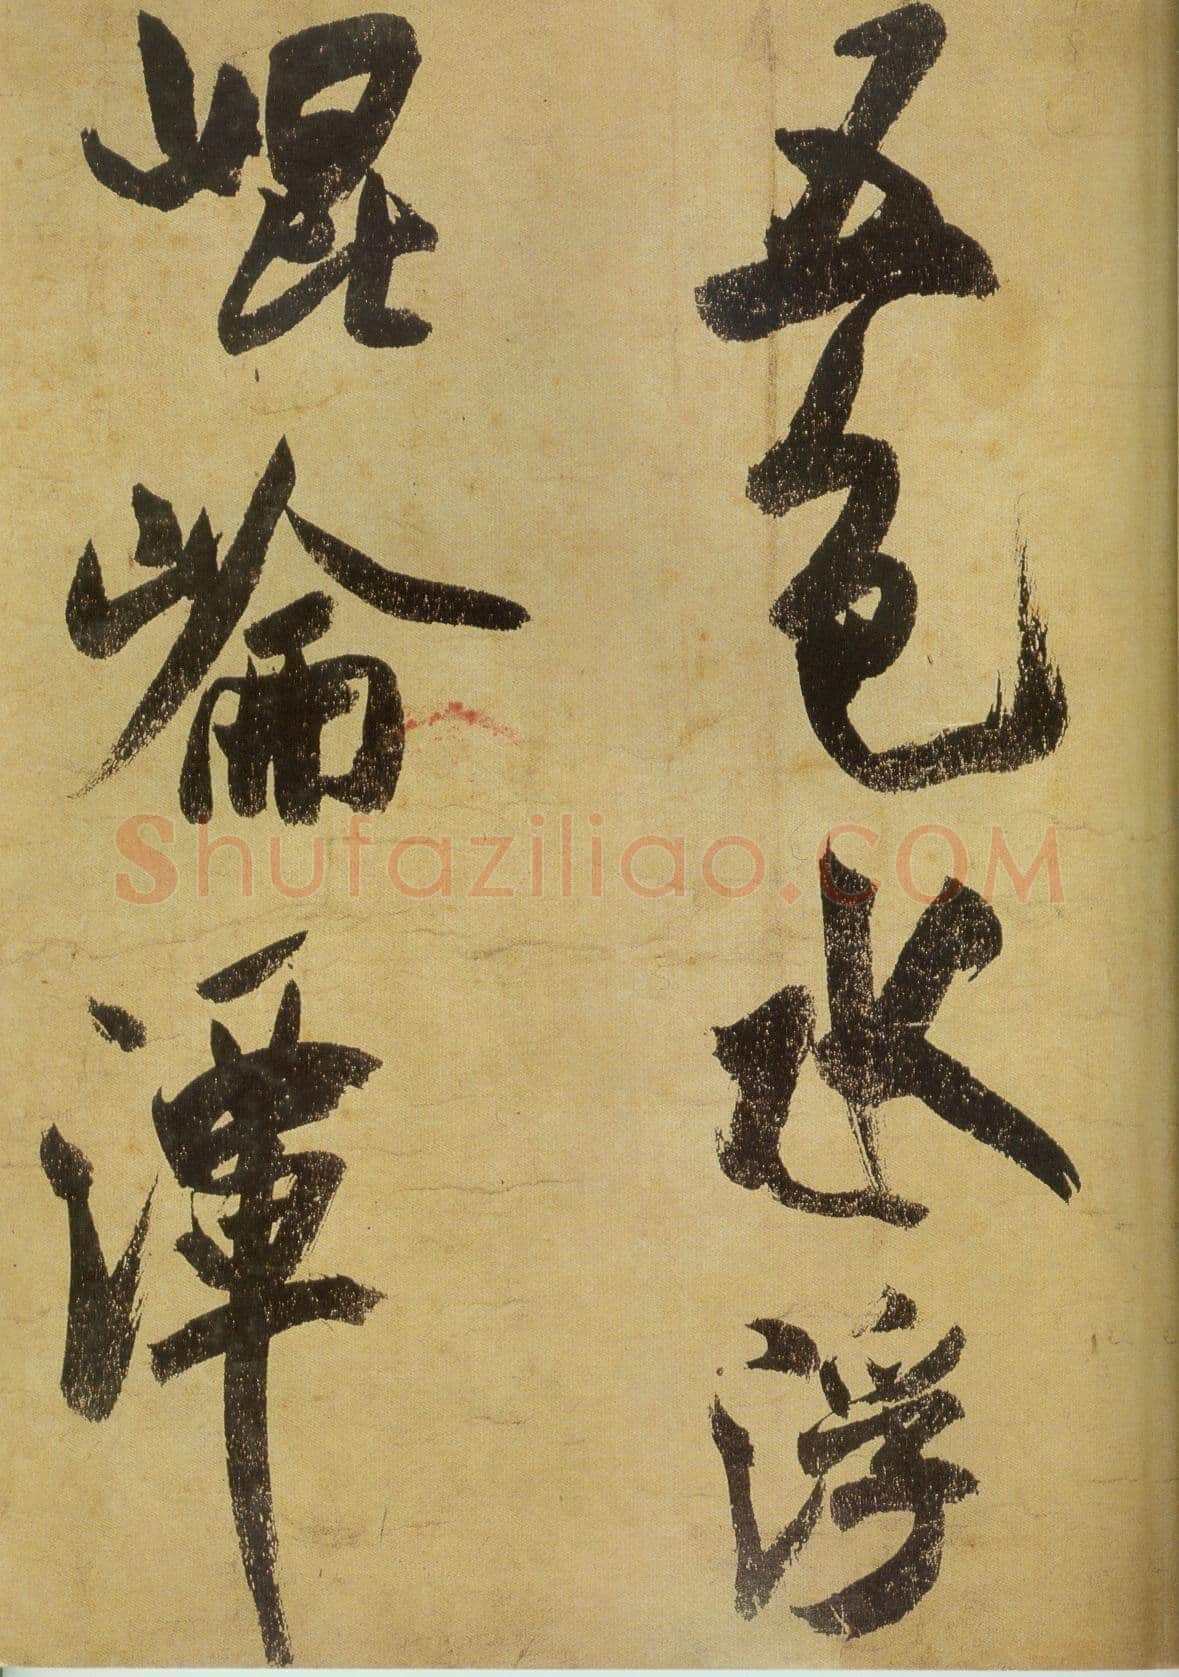 五色水浮
崐崘潭
Shufaziliao.COM